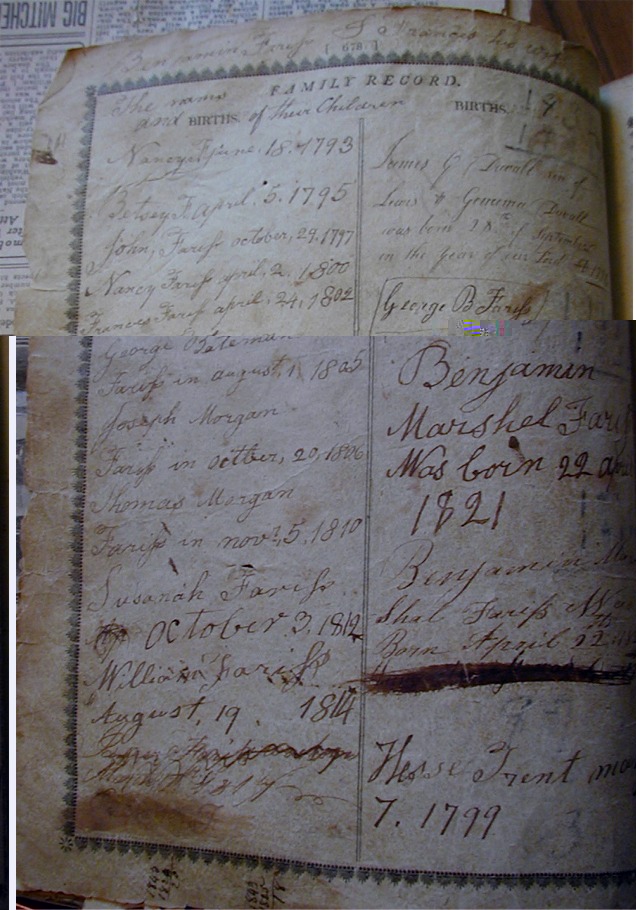 BIG MITCHE
Benjamin Fariss & Frances his wife
( 678 )
FAMILY RECORD.
The names
and BIRTHS of their Children
Nancy F June 18. 1793
Betsey F April. 5. 1795
John, Fariss october, 29, 1797
Nancy Fariss april, 2. 1800
Frances Fariss april, 24, 1802
George Bateman
Fariss in august, 1 1805
Joseph Morgan
Fariss in octber, 20, 1806
Thomas Morgan
Fariss in novr, 5, 1810
Susanah Fariss
October 3, 1812
William Fariss
August, 19. 1814
BIRTHS
James G Duvall son of
Lewis & Duvall
was born 28th of September
in the year of our Lord
George B Fariss
Benjamin
Marshel Fari
Was born 22 ap
1821
Benjamin Mar
Shal Fariss Was
Born April 22
Trent
7. 1799